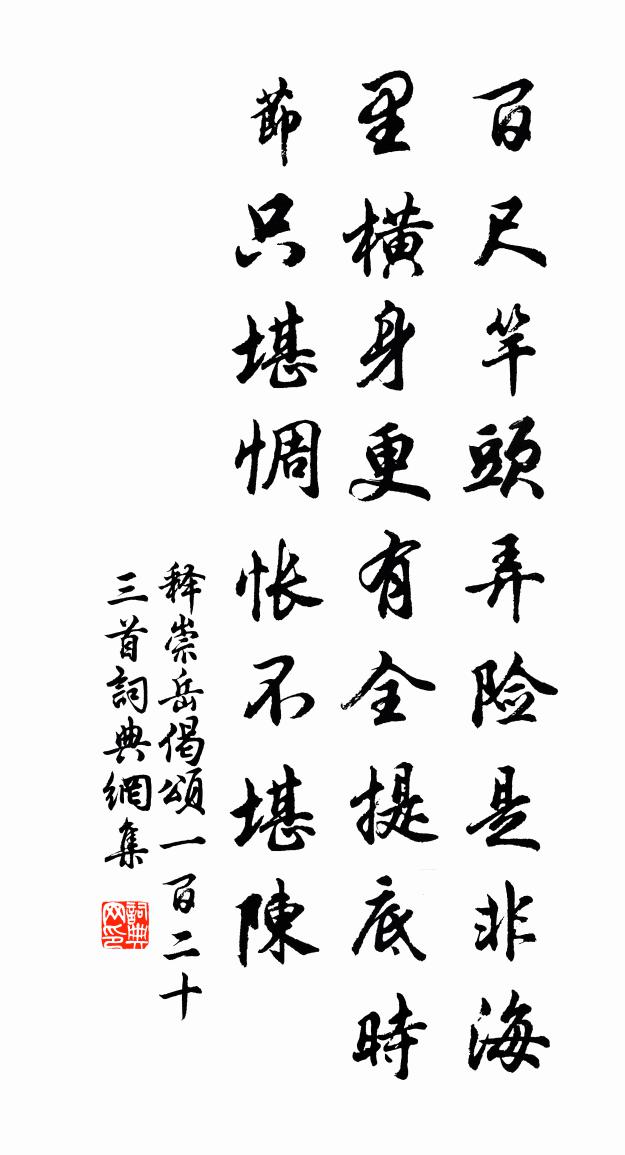 百尺竿頭弄险是非海
里橫身更有全提底時
節只堪惆怅不堪陳
释崇岳偈頌一百二十
三首詞典網集
詞典网印